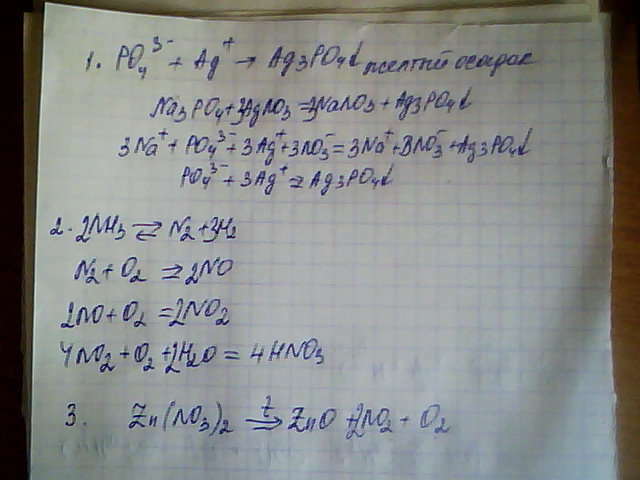 1. PO₄³⁻ + Ag⁺ → Ag₃PO₄↓ желтый осадок
Na₃PO₄ + 3AgNO₃ = 3NaNO₃ + Ag₃PO₄↓
3Na⁺ + PO₄³⁻ + 3Ag⁺ + 3NO₃⁻ = 3Na⁺ + 3NO₃⁻ + Ag₃PO₄↓
PO₄³⁻ + 3Ag⁺ = Ag₃PO₄↓
2. 2NH₃ ⇄ N₂ + 3H₂
N₂ + O₂ ⇄ 2NO
2NO + O₂ = 2NO₂
4NO₂ + O₂ + 2H₂O = 4HNO₃
3. Zn(NO₃)₂ =t=> ZnO + 2NO₂ + O₂